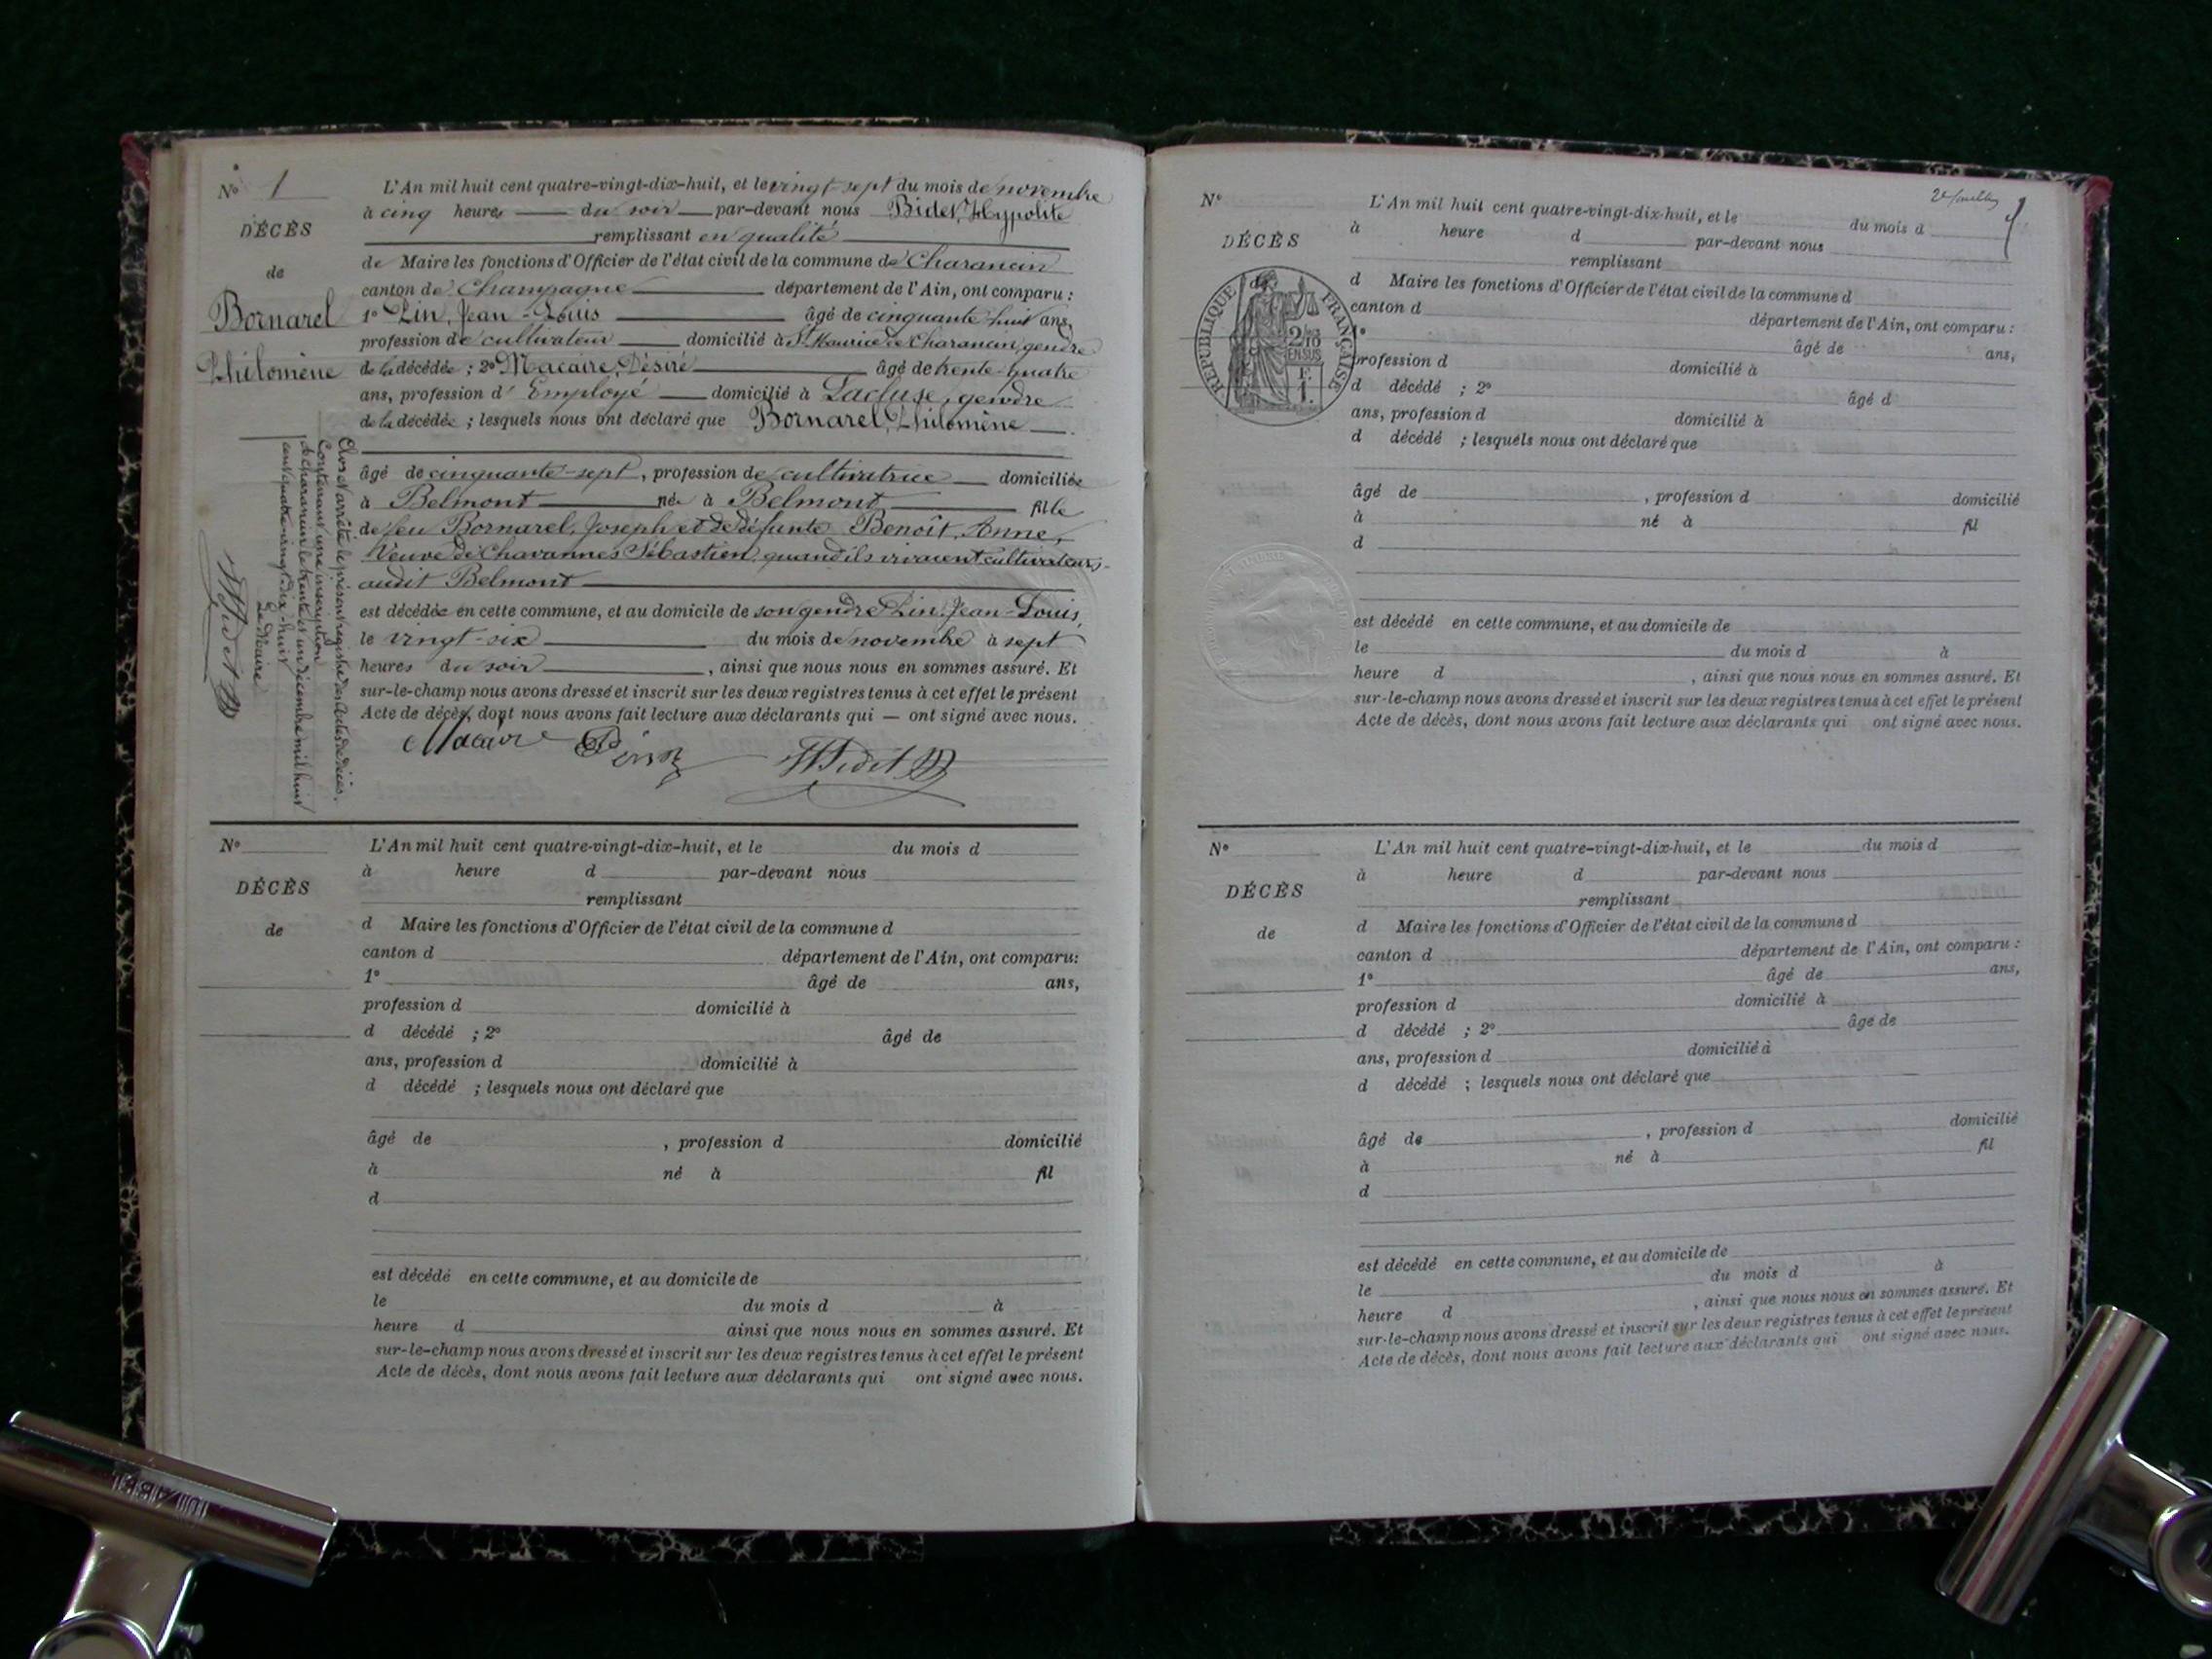 N° 1
DÉCÈS
de
Bornarel
Philomène
L'An mil huit cent quatre-vingt-dix-huit, et le vingt-sept du mois de novembre
à cinq heures du soir par-devant nous Bidet, Hypolite
remplissant en qualité
de Maire les fonctions d'Officier de l'état civil de la commune de Charancin
canton de Champagne département de l'Ain, ont comparu :
1° Pin, Jean-Louis âgé de cinquante huit ans,
profession de cultivateur domicilié à St Maurice de Charancin, gendre
de la décédée ; 2° Macaire, Désiré âgé de trente-quatre
ans, profession d'Employé domicilié à Lacluse, gendre
de la décédée ; lesquels nous ont déclaré que Bornarel, Philomène
âgé de cinquante-sept, profession de cultivatrice domiciliée
à Belmont née à Belmont fille
de feu Bornarel, Joseph et de défunte Benoît, Anne,
Veuve de Chavannes Sébastien, quand ils vivaient cultivateurs
audit Belmont
est décédée en cette commune, et au domicile de son gendre Pin, Jean-Louis,
le vingt-six du mois de novembre à sept
heures du soir, ainsi que nous nous en sommes assuré. Et
sur-le-champ nous avons dressé et inscrit sur les deux registres tenus à cet effet le présent
Acte de décès, dont nous avons fait lecture aux déclarants qui — ont signé avec nous.
Macaire Pin HBidet
Clos et arrêté le présent registre des actes de décès,
Contenant une inscription
à Charancin le trente et un décembre mil huit
cent quatre-vingt-dix-huit
Le Maire
HBidet
N°
DÉCÈS
de
L'An mil huit cent quatre-vingt-dix-huit, et le du mois d
à heure d par-devant nous
remplissant
d Maire les fonctions d'Officier de l'état civil de la commune d
canton d département de l'Ain, ont comparu:
1° âgé de ans,
profession d domicilié à
d décédé ; 2° âgé de
ans, profession d domicilié à
d décédé ; lesquels nous ont déclaré que
âgé de , profession d domicilié
à né à fil
d
est décédé en cette commune, et au domicile de
le du mois d à
heure d ainsi que nous nous en sommes assuré. Et
sur-le-champ nous avons dressé et inscrit sur les deux registres tenus à cet effet le présent
Acte de décès, dont nous avons fait lecture aux déclarants qui ont signé avec nous.
N°
DÉCÈS
de
RÉPUBLIQUE FRANÇAISE
2/10
EN SUS
F.
1.
L'An mil huit cent quatre-vingt-dix-huit, et le du mois d
à heure d par-devant nous
remplissant
d Maire les fonctions d'Officier de l'état civil de la commune d
canton d département de l'Ain, ont comparu :
1° âgé de ans,
profession d domicilié à
d décédé ; 2° âgé d
ans, profession d domicilié à
d décédé ; lesquels nous ont déclaré que
âgé de , profession d domicilié
à né à fil
d
est décédé en cette commune, et au domicile de
le du mois d à
heure d , ainsi que nous nous en sommes assuré. Et
sur-le-champ nous avons dressé et inscrit sur les deux registres tenus à cet effet le présent
Acte de décès, dont nous avons fait lecture aux déclarants qui ont signé avec nous.
N°
DÉCÈS
de
L'An mil huit cent quatre-vingt-dix-huit, et le du mois d
à heure d par-devant nous
remplissant
d Maire les fonctions d'Officier de l'état civil de la commune d
canton d département de l'Ain, ont comparu :
1° âgé de ans,
profession d domicilié à
d décédé ; 2° âgé de
ans, profession d domicilié à
d décédé ; lesquels nous ont déclaré que
âgé de , profession d domicilié
à né à fil
d
est décédé en cette commune, et au domicile de
le du mois d à
heure d , ainsi que nous nous en sommes assuré. Et
sur-le-champ nous avons dressé et inscrit sur les deux registres tenus à cet effet le présent
Acte de décès, dont nous avons fait lecture aux déclarants qui ont signé avec nous.